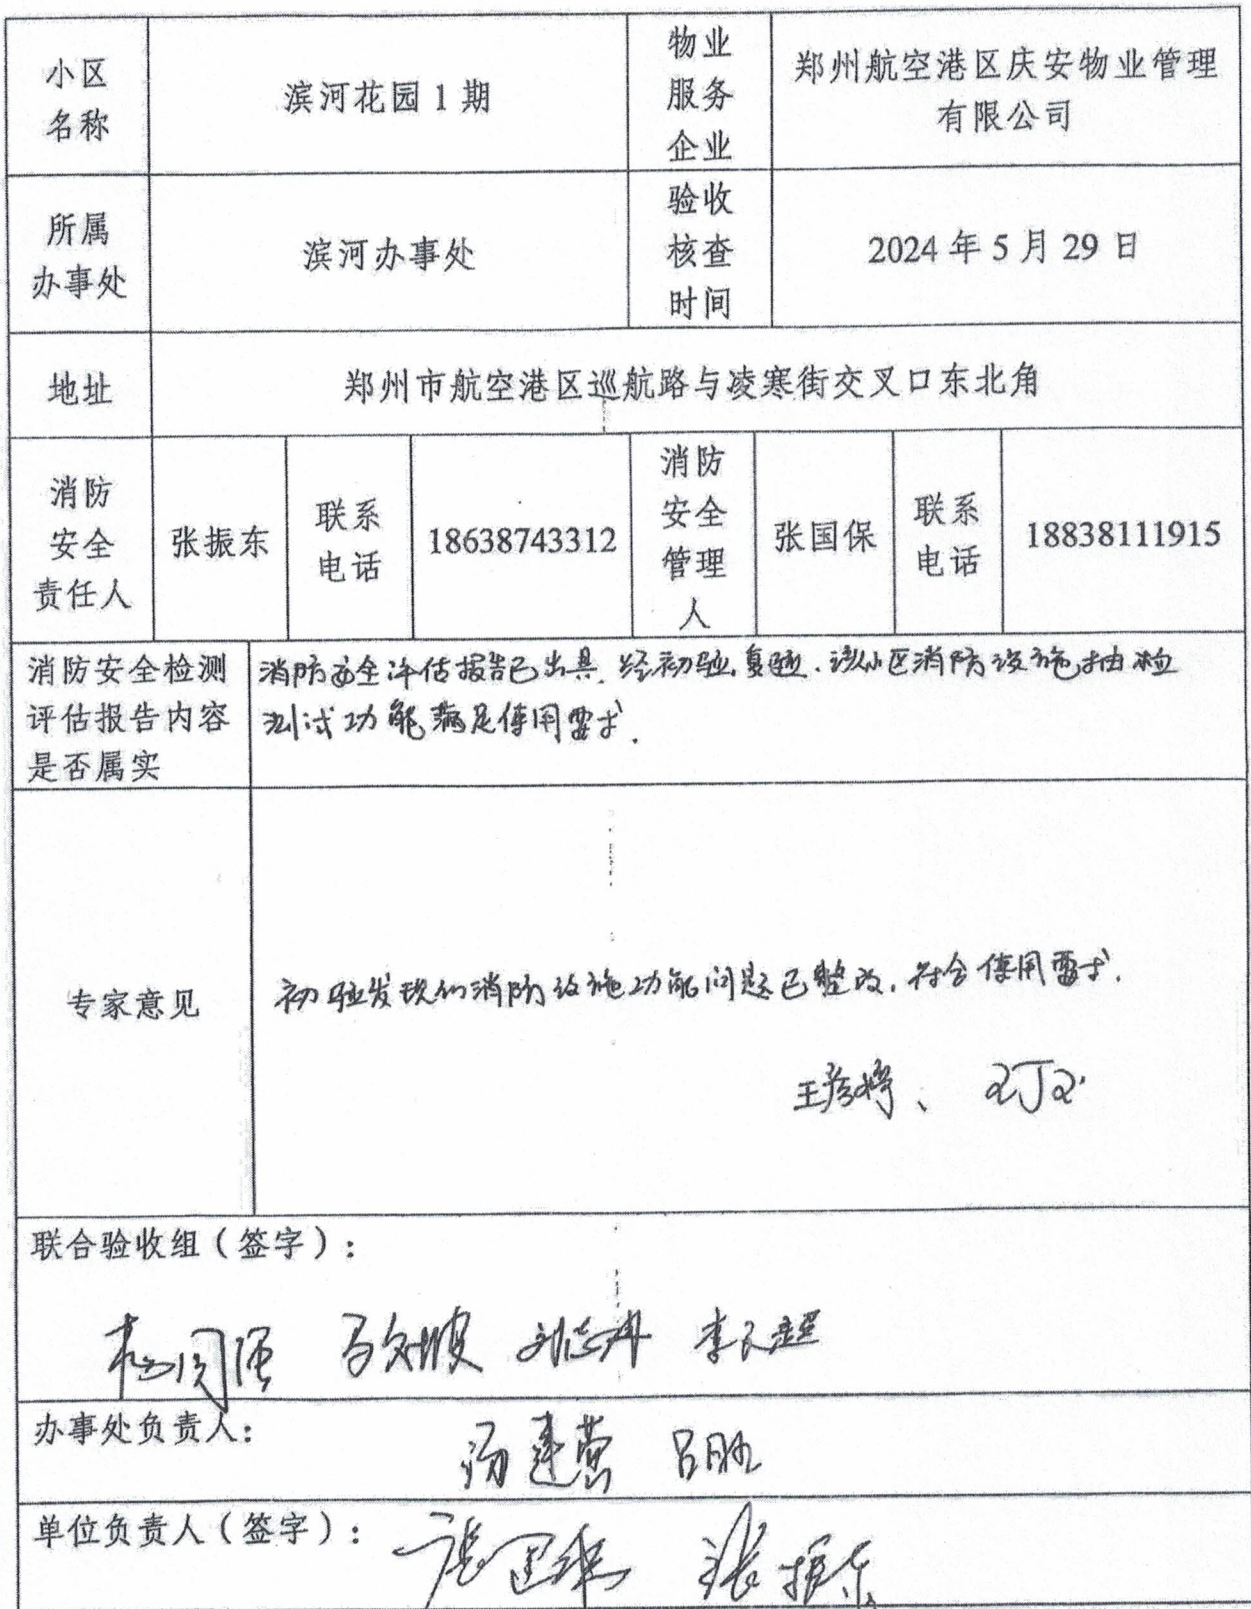 小区
名称
滨河花园1期
物业
服务
企业
郑州航空港区庆安物业管理
有限公司
所属
办事处
滨河办事处
验收
核查
时间
2024年5月29日
地址
郑州市航空港区巡航路与凌寒街交叉口东北角
消防
安全
责任人
张振东
联系
电话
18638743312
消防
安全
管理
人
张国保
联系
电话
18838111915
消防安全检测
评估报告内容
是否属实
消防安全评估报告已出具,经初验,复验,该小区消防设施,抽检
测试功能满足使用要求.
专家意见
初验发现的消防设施功能问题已整改,符合使用要求.
联合验收组(签字):
办事处负责人:
单位负责人(签字):
张国保 张振东